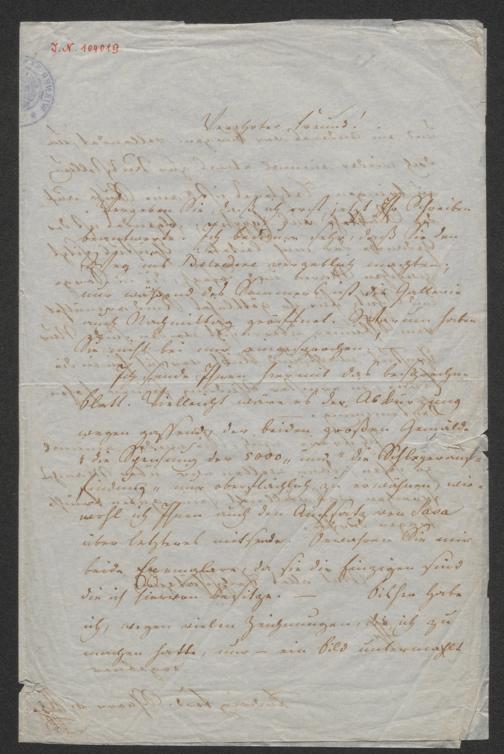 J. N. 104019
Verehrter Freund!
Vergeben Sie, daß ich erst jetzt Ihr Schreiben
beantworte. Ich bedaure sehr, daß Sie den
Weg ins Belvedere vergeblich machten,
nur während des Sommers ist die Gallerie
auch Nachmittag geöffnet. Warum haben
Sie nicht bei mir
Ich sende Ihnen hiermit das besprochne
Blatt. Vielleicht wäre es der Abkürzung
wegen passend, der beiden großen Gemälde
"die Speisung der 5000" und "die
findung" nur oberflächlich zu erwähnen, wie-
wohl ich Ihnen auch den Aufsatz von Sava
über letzteres mitsende. Bewahren Sie mir
beide Exemplare, da sie die einzigen sind
die ich hiervon besitze. — Bisher habe
ich, wegen vielen Zeichnungen, die ich zu
machen hatte, nur — ein Bild untermahlt